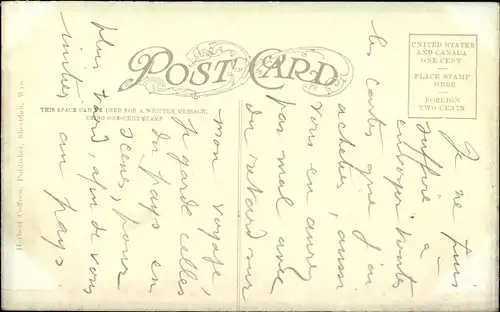 POST CARD
THIS SPACE CAN BE USED FOR A WRITTEN MESSAGE,
USING ONE-CENT STAMP
UNITED STATES
AND CANADA
ONE CENT
PLACE STAMP
HERE
FOREIGN
TWO CENTS
Herbert Coffeen, Publisher, Sheridan, Wyo.
Je ne puis
suffire à
envoyer toutes
les cartes que j'ai
achetées, aussi
vous en aurez
pas mal avec
du retard sur
mon voyage,
je garde celles
du pays en
scènes, pour
plus tard, afin de vous
initier au pays